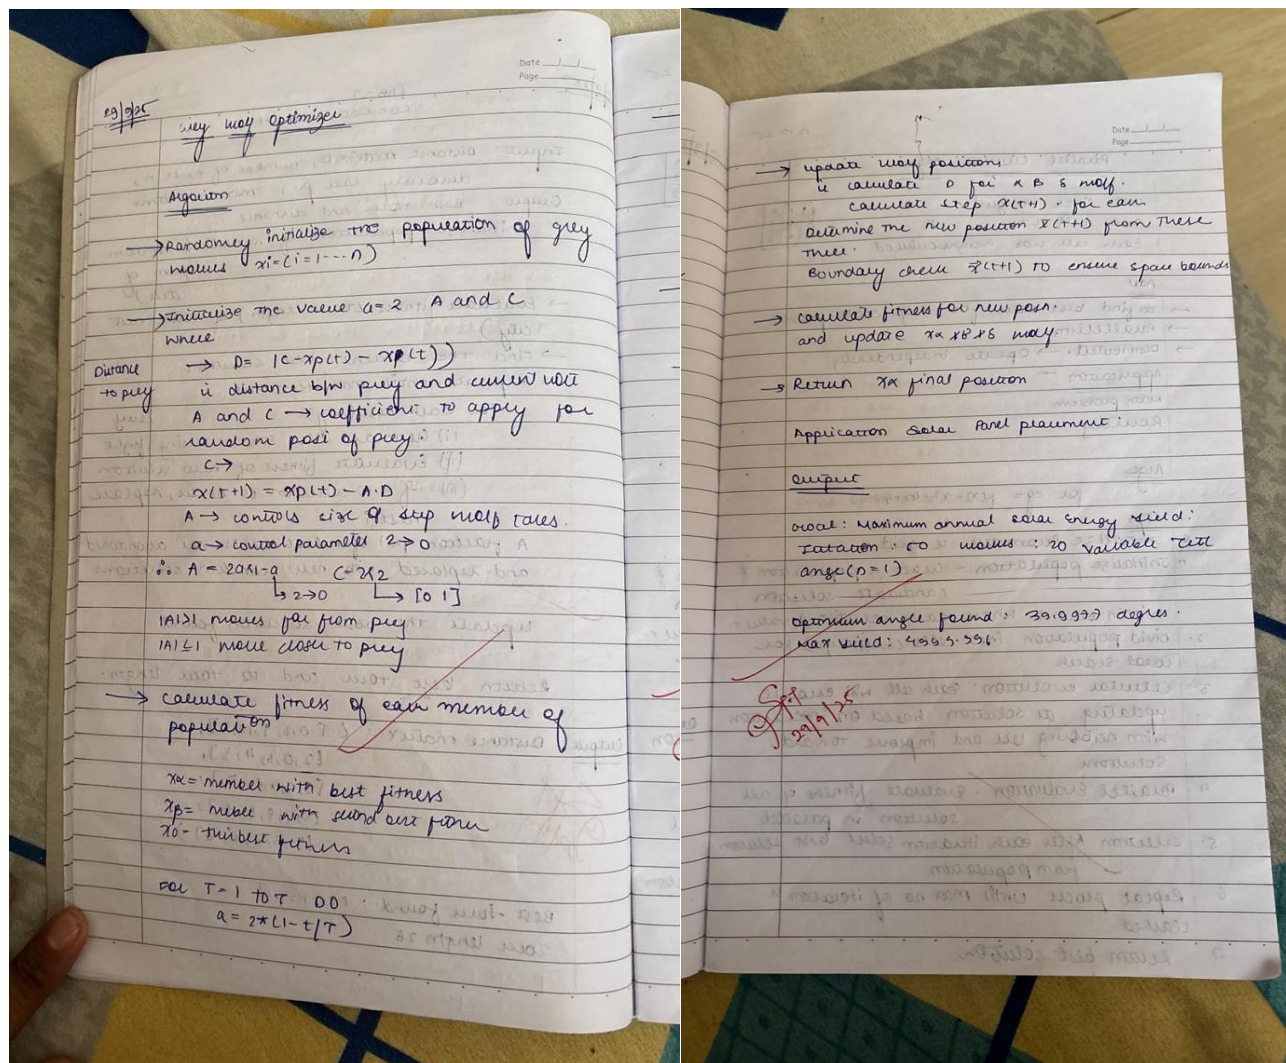 Date
Page
29/9/25
Grey Wolf Optimizer
Algorithm
→ Randomly initialize the population of grey
wolves xi=(i=1---n)
→ Initialize the value a=2 A and C
where
Distance
to prey
→ D= |C-xp(t) - xp(t))
is distance b/w prey and current wolf
A and C → coefficient to apply for
random posi of prey.
C→
x(t+1) = xp(t) - A.D
A → controls size of step wolf takes.
a → control parameter 2→0
∴ A = 2ar1-a C=2r2
↳ 2→0 ↳ [0 1]
|A|>1 moves far from prey
|A|≤1 move closer to prey
→ calculate fitness of each member of
population
xα = member with best fitness
xβ = member with second best fitness
xδ - third best fitness
For T=1 to T DO
a = 2*(1-t/T)
Date
Page
→ update wolf positions
is calculate D for α β δ wolf.
calculate step x(t+1). for each
Determine the new position x(t+1) from these
three.
Boundary check x(t+1) to ensure space bounds
→ calculate fitness for new posn.
and update xα xβ xδ wolf.
→ Return xα final position
Application Solar Panel placement:
Output
Goal: Maximum annual solar energy yield:
Iteration: 50 wolves: 20 variable tilt
angle (D=1)
Optimum angle found: 39.9977 degres.
Max Yield: 4999.996
29/9/25